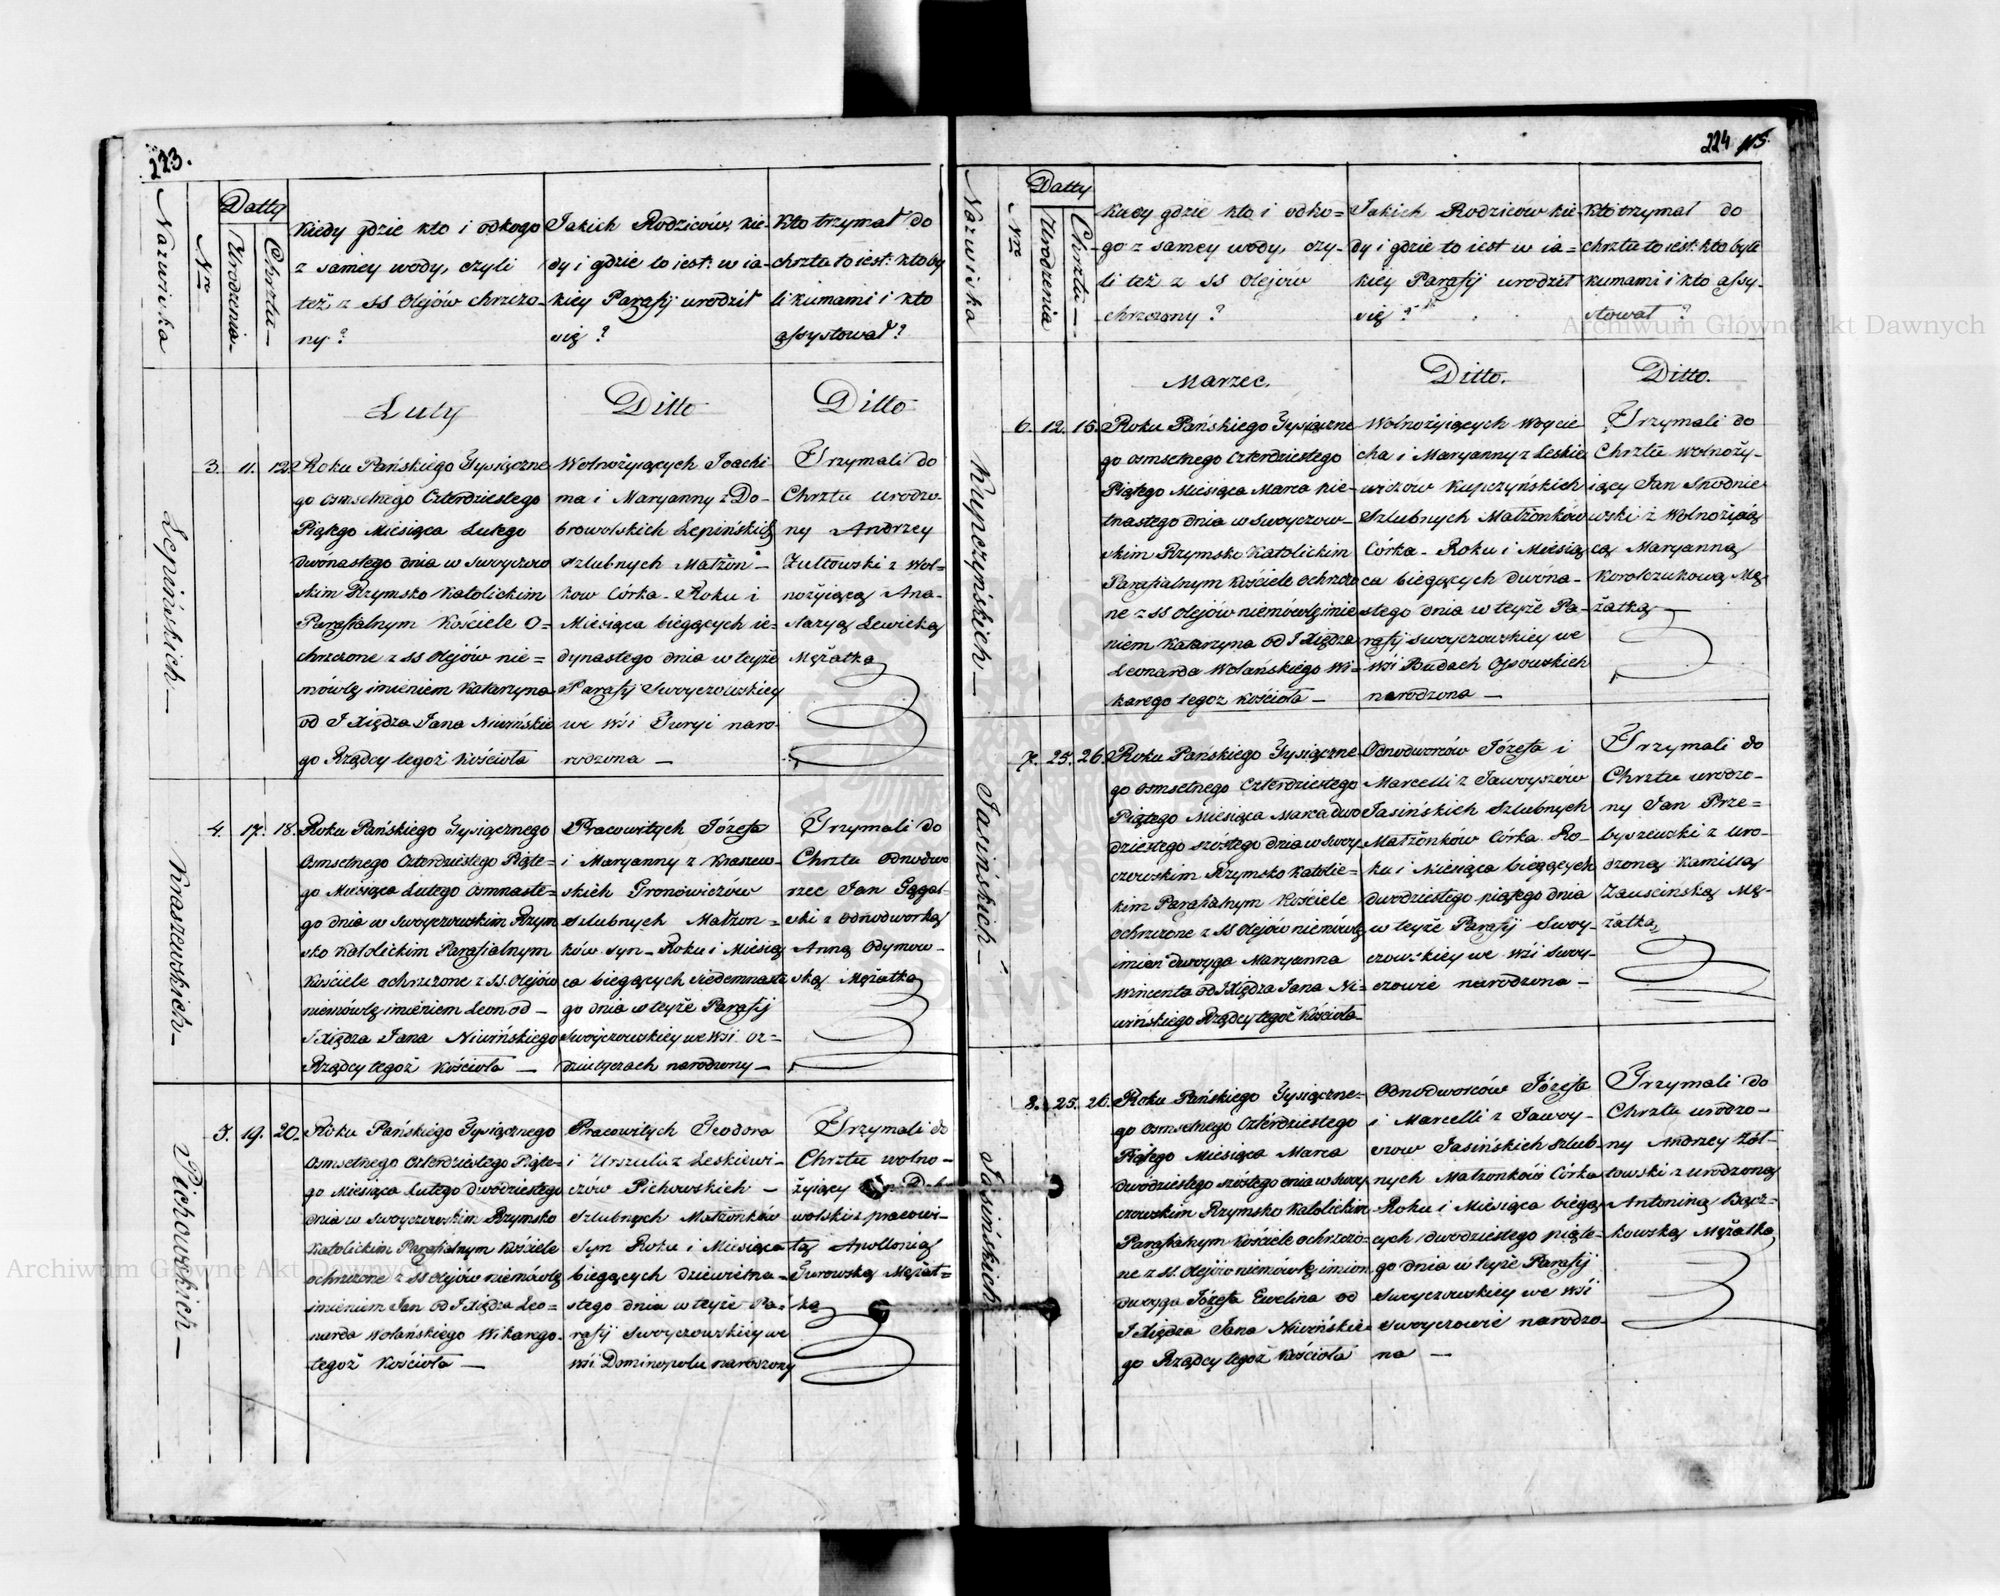 223.
Nazwiska
Nro
Datty
Urodzenia
Chrztu
Kiedy gdzie kto i od kogo
z samey wody, czyli
też z SS Olejów chrzczo-
ny?
Jakich Rodziców, kie-
dy i gdzie to iest: w ia-
kiey Parafij urodził
się?
Kto trzymał do
chrztu to iest: kto by
li kumami i kto
assystował?
Luty
Ditto
Ditto
Łepińskich
3. 11. 12.
Roku Pańskiego Tysiączne
go osmsetnego Czterdziestego
Piątego Miesiąca Lutego
dwónastego dnia w Swoyczow
skim Rzymsko Katolickim
Parafialnym Kościele O=
chrzczone z SS Olejów nie=
mówlę imieniem Katarzyna
od J Xiędza Jana Niwińskie
go Rządcy tegoż Kościoła
Wolnożyiących Joachi
ma i Maryanny z Do-
browolskich Łepińskich
Szlubnych Małżon-
kow Córka - Roku i
Miesiąca biegących ie=
dynastego dnia w teyże
Parafij Swoyczowskiey
we Wsi Turyi naro-
rodzona -
Trzymali do
Chrztu urodzo
ny Andrzey
Żułtowski z Wol=
nożyiącą Ana-
stazyą Lewicką
Mężatką
Kraszewskich
4. 17. 18.
Roku Pańskiego Tysiącznego
Osmsetnego Czterdziestego Piąte=
go Miesiąca Lutego Osmnaste=
go dnia w Swoyczowskim Rzym
sko Katolickim Parafialnym
Kościele ochrzczone z S.S. Olejów
niemówlę imieniem Leon od -
J Xiędza Jana Niwińskiego
Rządcy tegoż Kościoła -
Pracowitych Józefa
i Maryanny z Kraszew-
skich Gronowiczów
Szlubnych Małżon=
ków syn - Roku i Miesią
ca biegących siedemnaste
go dnia w teyże Parafij
Swoyczowskiey we Wsi Or=
dziutyczach narodzony -
Trzymali do
Chrztu Odnodwo
rzec Jan Gągal
ski z Odnodworką
Anną Odymow-
ską Mężatką
Pichowskich
5. 19. 20.
Roku Pańskiego Tysiącznego
Osmsetnego Czterdziestego Piąte=
go Miesiąca Lutego Dwódziestego
dnia w Swoyczowskim Rzymsko
Katolickim Parafialnym Kościele
ochrzczone z SS Olejów niemówlę
imieniem Jan od J Xiędza Leo=
narda Wolańskiego Wikarego
tegoż Kościoła -
Pracowitych Teodora
i Urszuli z Leskiewi-
czów Pichowskich -
Szlubnych Małżonków
Syn Roku i Miesiąca
biegących dziewiętna-
stego dnia w teyże Pa-
rafij Swoyczowskiey we
Wsi Dominopolu narodzony
Trzymali do
Chrztu wolno-
żyiący
wolski z pracowi-
tą Apollonią
Turowską Mężat=
ką
224 115.
Nazwiska
Nro
Datty
Urodzenia
Chrztu
Kiedy gdzie kto i od ko=
go z samey wody, czy-
li też z SS Olejów
chrzczony?
Jakich Rodziców kie
dy i gdzie to iest w ia=
kiey Parafij urodził
się?
Kto trzymał do
chrztu to iest: kto byli
kumami i kto assy-
stował?
Marzec.
Ditto.
Ditto.
Kupczyńskich
6. 12. 15.
Roku Pańskiego Tysiączne
go osmsetnego Czterdziestego
Piątego Miesiąca Marca Pie-
tnastego dnia w Swoyczow-
skim Rzymsko Katolickim
Parafialnym Kościele Ochrzczo
ne z SS Olejów niemówlę imie
niem Katarzyna od J Xiędza
Leonarda Wolańskiego Wi-
karego tegoż Kościoła -
Wolnożyiących Woycie
cha i Maryanny z Leskie
wiczów Kupczyńskich
Szlubnych Małżonków
Córka - Roku i Miesią
ca biegących dwóna-
stego dnia w teyże Pa-
rafij Swoyczowskiey we
Wsi Budach Ossowskich
narodzona -
Trzymali do
Chrztu wolnoży-
iący Jan Skodnie
wski z Wolnożyią
cą Maryanną
Korolczukową Mę-
żatką
Jasińskich
7. 25. 26.
Roku Pańskiego Tysiączne
go osmsetnego Czterdziestego
Piątego Miesiąca Marca dwo
dziestego szóstego dnia w Swoy
czowskim Rzymsko Katolic-
kim Parafialnym Kościele
ochrzczone z SS Olejów niemówlę
imion dwoyga Maryanna
Wincenta od J Xiędza Jana Ni-
wińskiego Rządcy tegoż Kościoła
Odnodworców Józefa i
Marcelli z Jaworszów
Jasińskich Szlubnych
Małżonków Córka Ro-
ku i Miesiąca biegących
dwodziestego piątego dnia
w teyże Parafij Swoy-
czowskiey we Wsi Swoy-
czowie narodzona -
Trzymali do
Chrztu urodzo-
ny Jan Prze=
byszewski z uro-
dzoną Kamillą
Zauscińską Mę-
żatką
Jasińskich
8. 25. 26.
Roku Pańskiego Tysiączne=
go osmsetnego Czterdziestego
Piątego Miesiąca Marca
dwodziestego szóstego dnia w Swoy
czowskim Rzymsko Katolickim
Parafialnym Kościele ochrzczo-
ne z SS. Olejów niemówlę imion
dwoyga Józefa Ewelina od
J Xiędza Jana Niwińskie-
go Rządcy tegoż Kościoła
Odnodworców Józefa
i Marcelli z Jawor-
szow Jasińskich Szlub-
nych Małżonków Córka
Roku i Miesiąca biegą
cych dwodziestego piąte-
go dnia w teyże Parafij
Swoyczowskiey we Wsi
Swoyczowie narodzo-
na -
Trzymali do
Chrztu urodzo-
ny Andrzey Żół-
towski z urodzoną
Antoniną Bącz=
kowską Mężatką
Archiwum Główne Akt Dawnych
Archiwum Główne Akt Dawnych